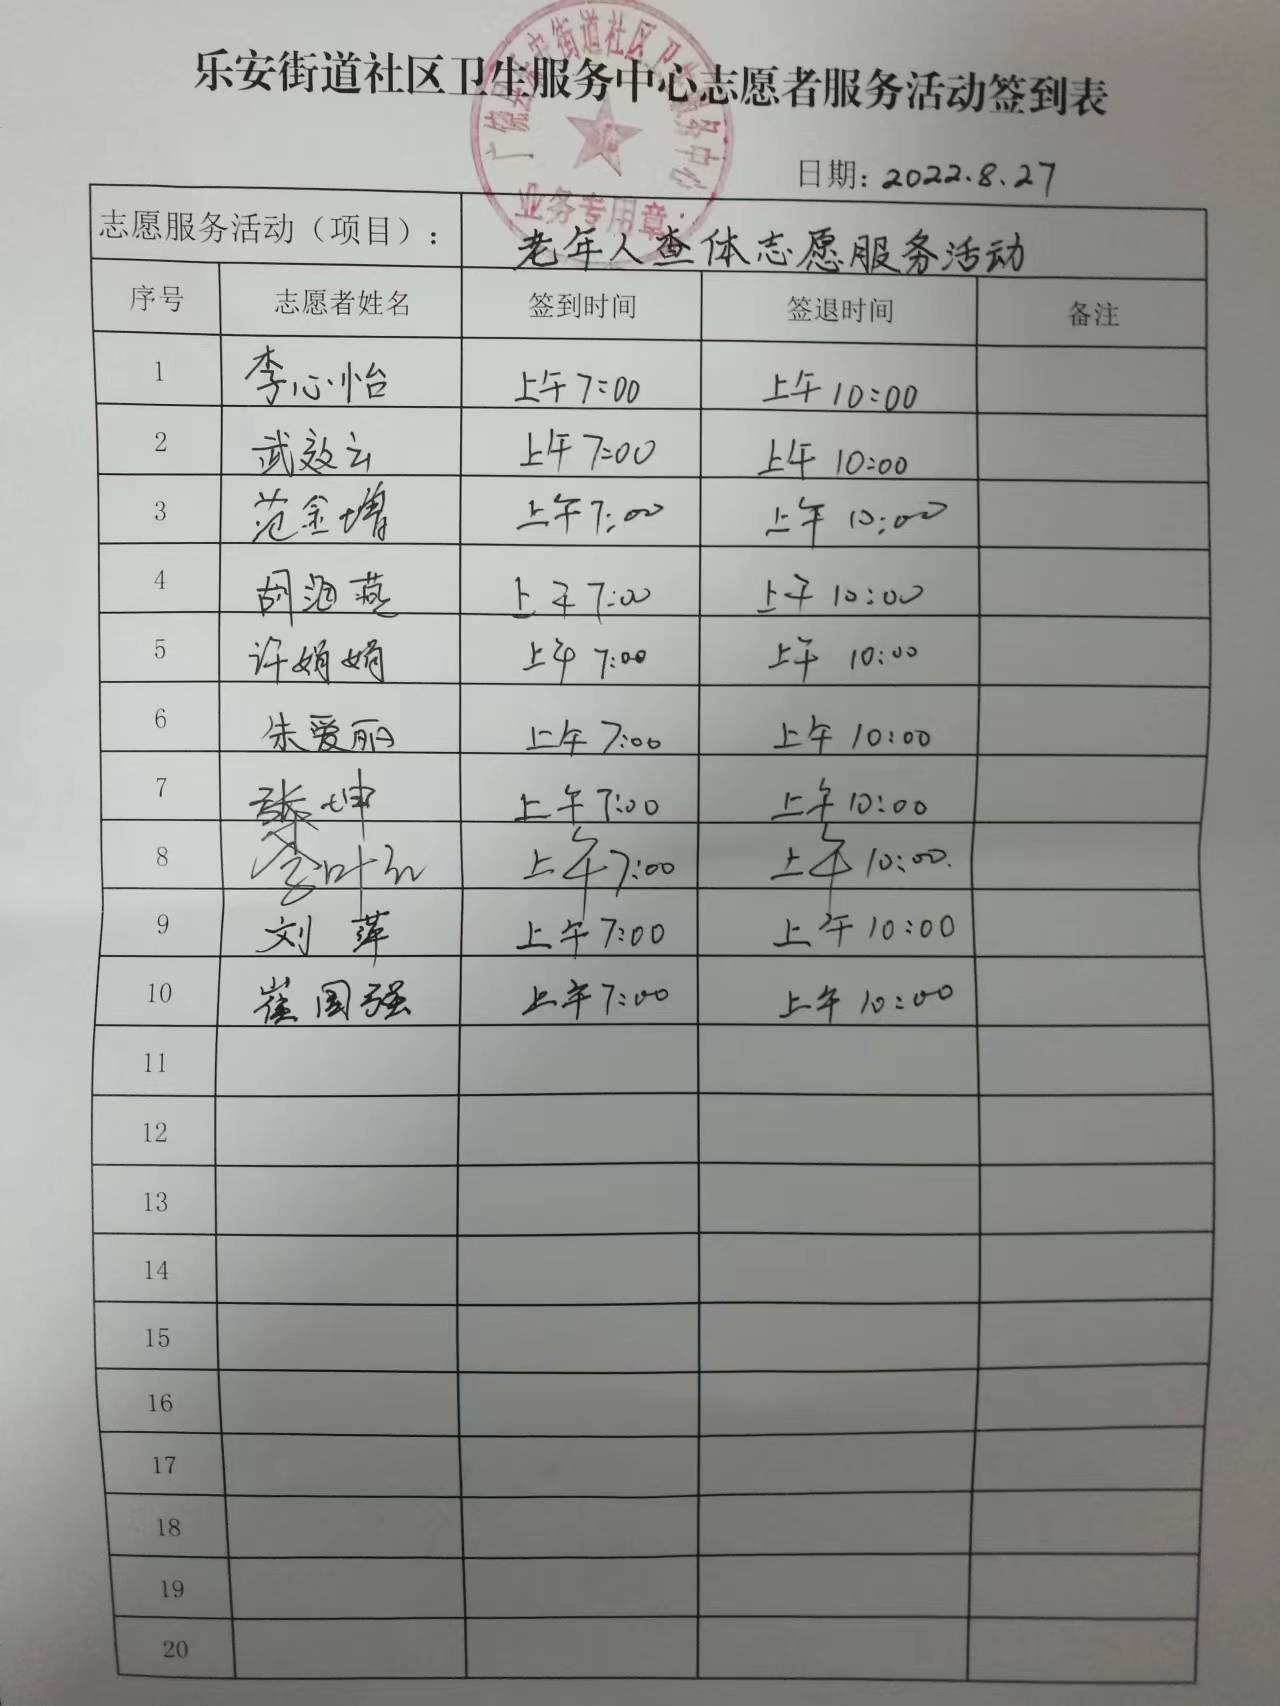 乐安街道社区卫生服务中心志愿者服务活动签到表
广饶县乐安街道社区卫生服务中心
业务专用章
日期: 2022.8.27
志愿服务活动（项目）： 老年人查体志愿服务活动
序号 志愿者姓名 签到时间 签退时间 备注
1 李心怡 上午7:00 上午10:00
2 武效云 上午7:00 上午10:00
3 范金增 上午7:00 上午10:00
4 胡海燕 上午7:00 上午10:00
5 许娟娟 上午7:00 上午10:00
6 朱爱丽 上午7:00 上午10:00
7 坤 上午7:00 上午10:00
8 李叶红 上午7:00 上午10:00.
9 刘萍 上午7:00 上午10:00
10 崔国强 上午7:00 上午10:00
11
12
13
14
15
16
17
18
19
20